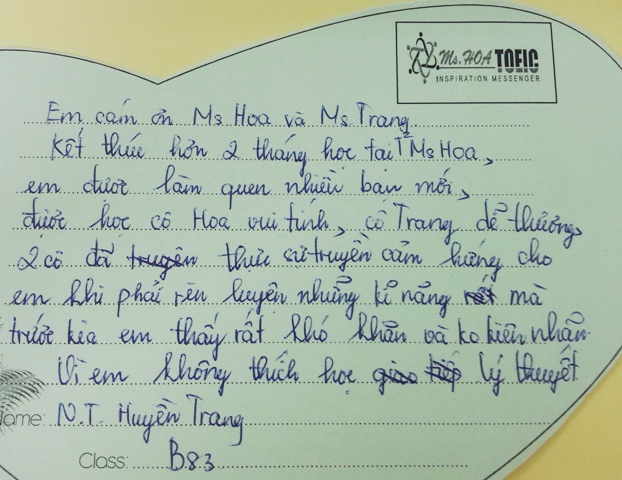 Ms. HOA TOEIC
INSPIRATION MESSENGER
Em cám ơn Ms Hoa và Ms Trang
Kết thúc hơn 2 tháng học tại Ms Hoa,
em được làm quen nhiều bạn mới,
được học cô Hoa vui tính, cô Trang dễ thương,
2 cô đã truyền thực sự truyền cảm hứng cho
em khi phải rèn luyện những kĩ năng mà
trước kia em thấy rất khó khăn và ko kiên nhẫn.
Vì em không thích học giao tiếp lý thuyết
Name: N.T. Huyền Trang
Class: B83